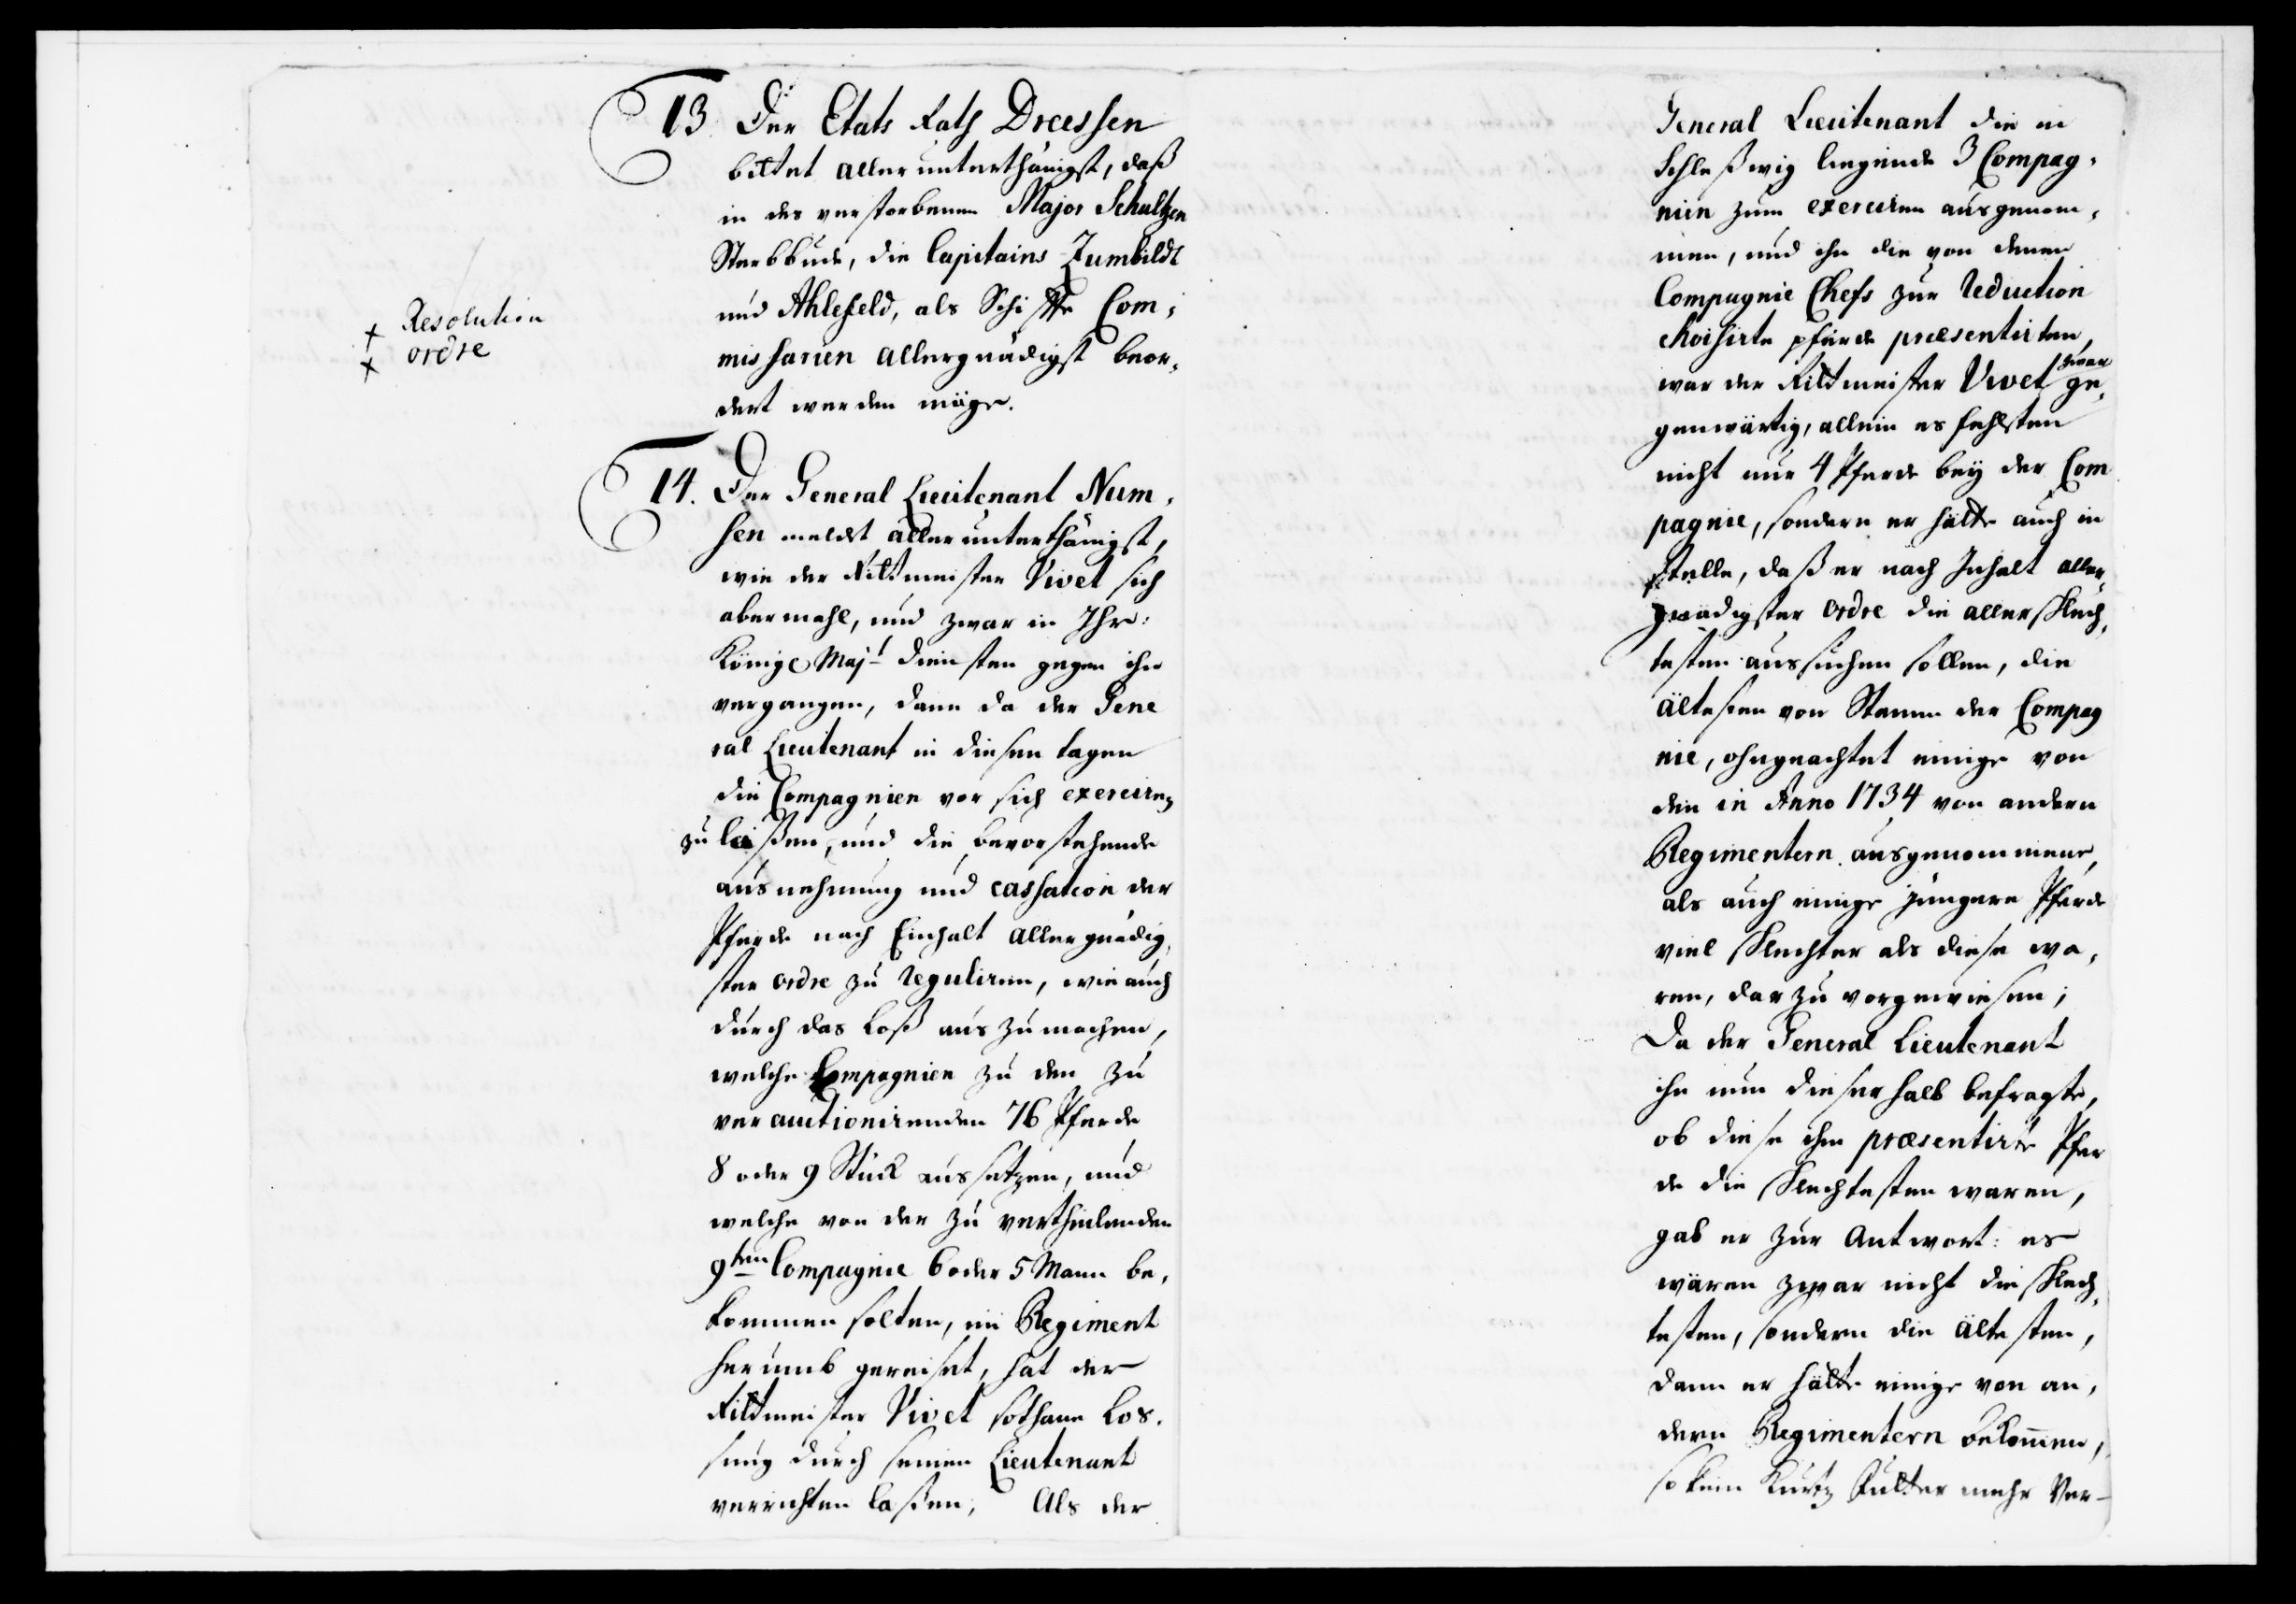 13. Der Etats Rath Dreessen
bittet allerunterthänigst, daß
in des verstorbenen Major Schultzen
Sterbbude, die Capitains Zumbildt
und Ahlefeld, als Schiffte Com-
missarien allergnädigst beor-
dert werden möge.
x Resolution
x ordre
14. Der General Lieutenant Num-
sen meldet allerunterthänigst,
wie der Rittmeister Vivet sich
abermahl, und zwar in Ihro:
Königl Majt diensten gegen ihn
vergangen, dann da der Gene
ral Lieutenant in diesen tagen
die Compagnien vor sich exerciren
zu laßen, und die bevorstehende
ausnehmung und cassation der
Pferde nach Einhalt allergnädig-
ster ordre zu reguliren, wie auch
durch das Loß auszumachen,
welche Compagnien zu den zu
verauctionirenden 76 Pferde
8 oder 9 Stück aussetzen, und
welche von der zu vertheilenden
9ten Compagnie 6 oder 5 Mann be-
kommen solten, im Regiment
herumb gereiset, hat der
Rittmeister Vivet sothane Los-
sung durch seinen Lieutenant
verrichten laßen, Als der
General Lieutenant die in
Schleßwig liegende 3 Compag-
nien zum exerciren ausgenom-
men, und ihn die von denen
Compagnie Chefs zur Reduction
choisirte pferde præsentirten,
war der Rittmeister Vivet zwar ge-
genwärtig, allein es fehlten
nicht nur 4 Pferde bey der Com
pagnie, sondern er hätte auch in
stelle, daß er nach Inhalt aller-
gnädigster ordre die allerschlech-
testen aussuchen sollen, die
ältesten von Stamm der Compag
nie, ohngeachtet einige von
den in Anno 1734 von andern
Regimentern ausgenommene,
als auch einige jüngere Pferde
viel schlechter als diese wa-
ren, dar zu vorgewiesen;
Da der General Lieutenant
ihn nun dieserhalb befragte,
ob diese ihm præsentirte Pfer
de die schlechtesten waren,
gab er zur Antwort: es
wären zwar nicht die schlech-
testen, sondern die ältesten,
dann er hätte einige von an-
dern Regimentern bekommen,
so kein Kurtz Futter mehr Ver-